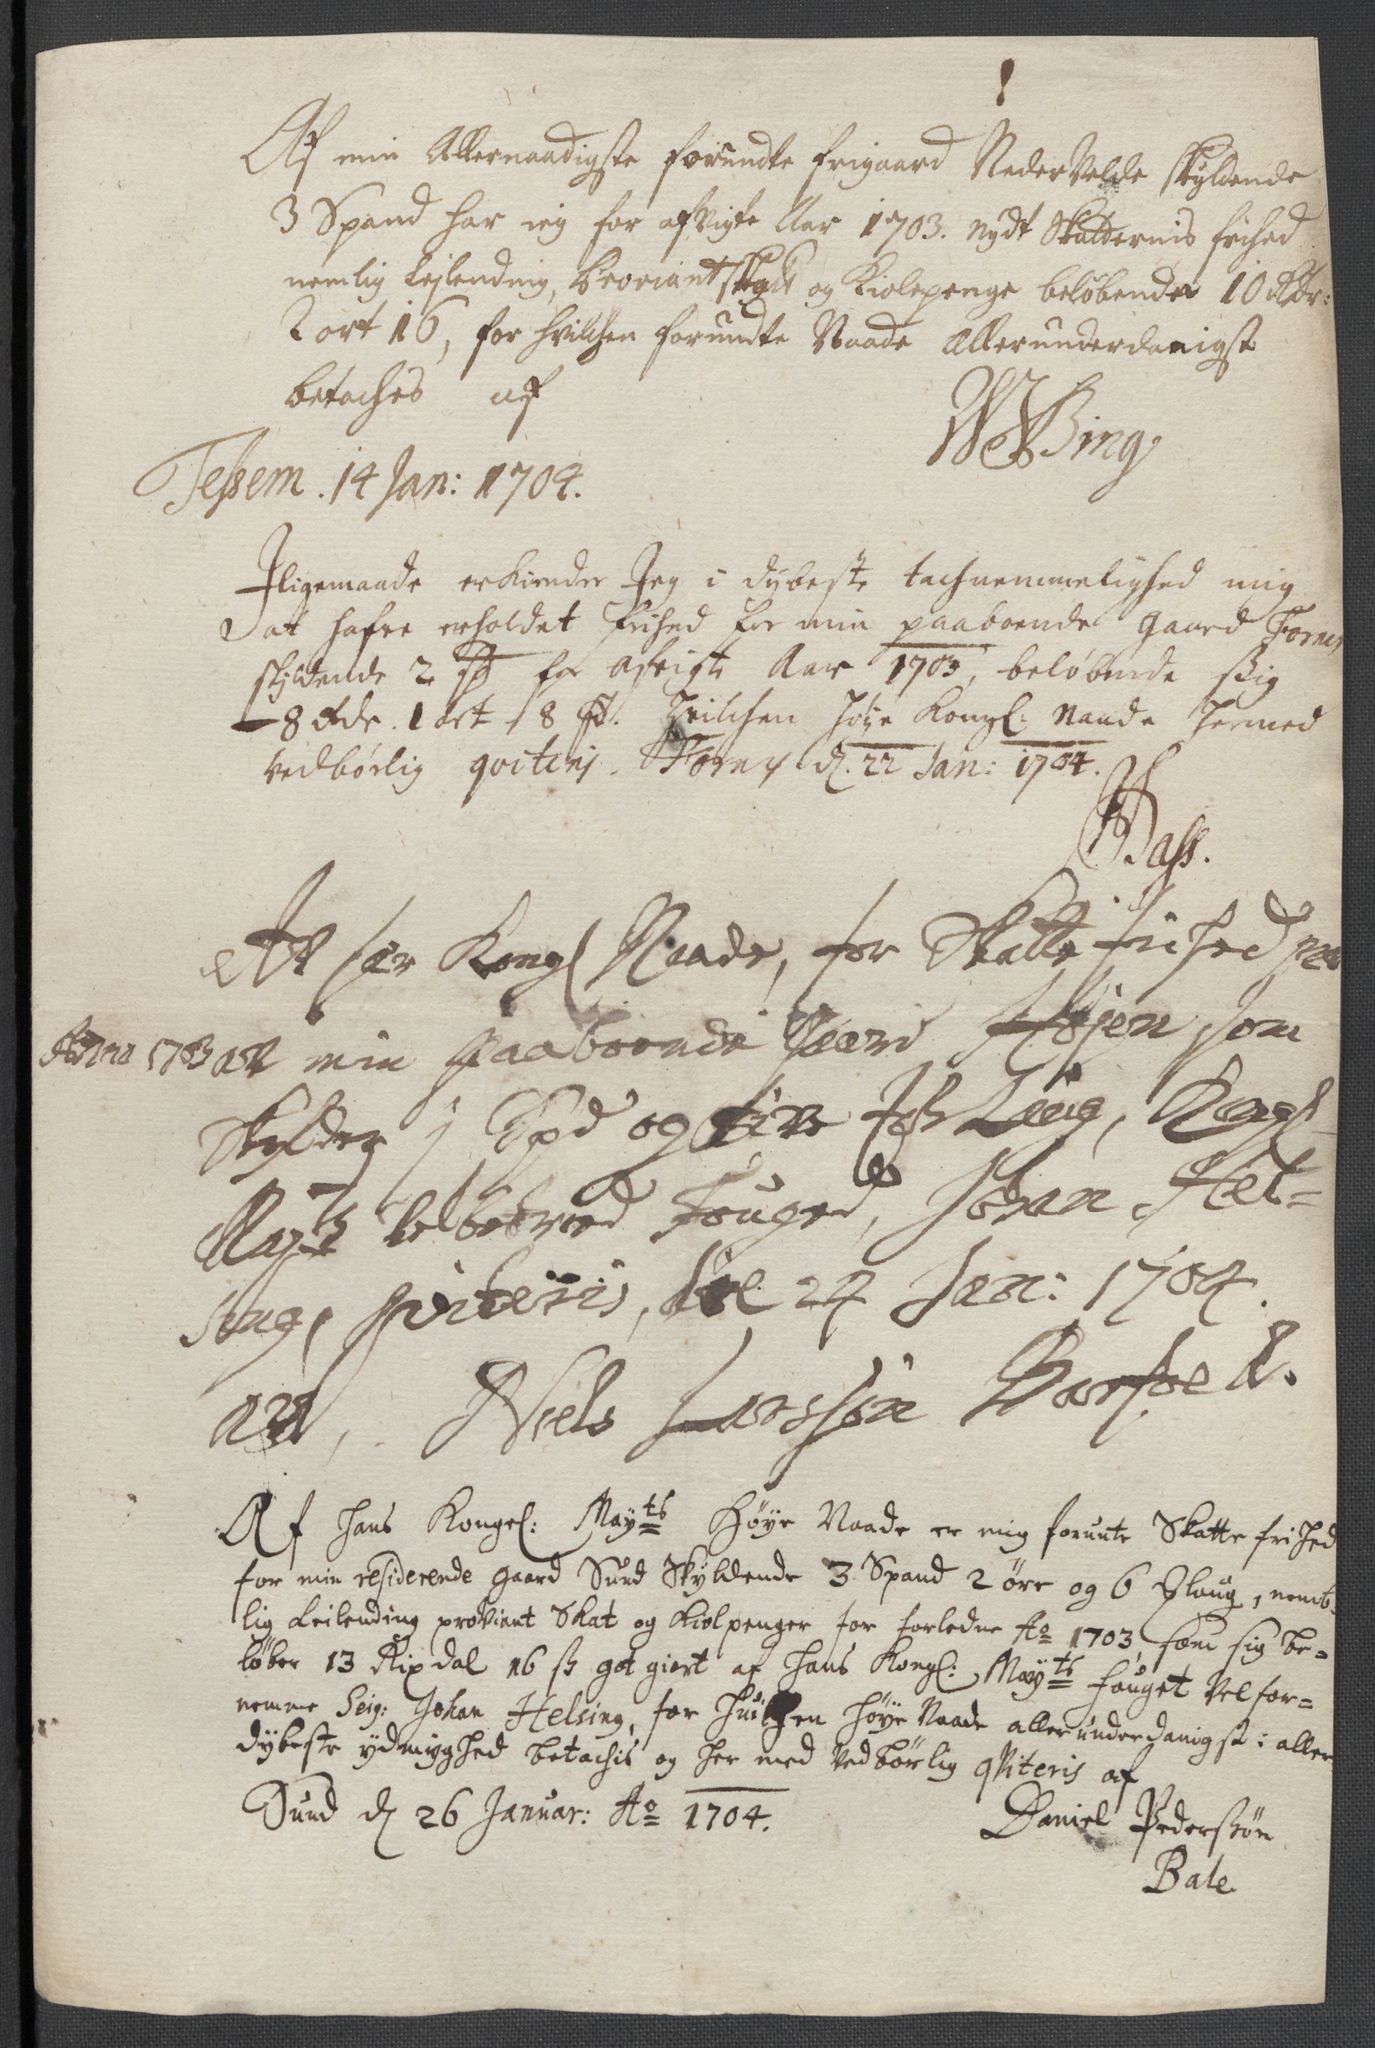 Af min Allernaadigste forundte frigaard Neder Velde skyldende
3 Spand har jeg for afvigte Aar 1703. nydt Skatternis frihed
nemlig Leilending, Proviantskatt og Kiolepenge beløbende 10 Rdr:
2 ort 16, for hvilchen forundte Naade allerunderdanigst
betaches af
WBing
Tessem . 14 Jan: 1704.
Iligemaade erkiender Jeg i dybeste tachnemmelighed mig
at hafve erholdet frihed for min paaboende gaard Fornes
skyldende 2 sp for afvigte Aar 1703, beløbende sig
8 Rdr. 1 ort 8 s. hvilchen høye Kongl: Naade hermed
vedbørlig qviteris. Fornes d. 22 Jan: 1704.
Bass.
At for Kongl Naade, for Skatte frihed paa
Anno 1703 af min Paaboende Gaard som
Skylder Spd og Kongl
May:ts velb Fouged, Johan Hel=
sing, qviteris, 24 Jan: 1704.
af, Niels Larssøn
Af Hans Kongel: May:ts Høye Naade er mig forunte Skatte frihed
for min residerende gaard Sund Skyldende 3 Spand 2 øre og 6 Slaug, nemb-
lig Leilending proviant Skat og Kiolpenger for forledne Ao 1703, som sig be=
løber 13 Rixdal 16 s got giort af Hans Kongl: May:ts fouget Velfor=
nemme Seig: Johan Helsing, for huilchen høye Naade allerunderdanigst i aller
dybeste ydmyghed betachis og her med Vedbørlig qviteris af
Sund d 26 Januar: Ao 1704.
Daniel Pederssøn
Bale